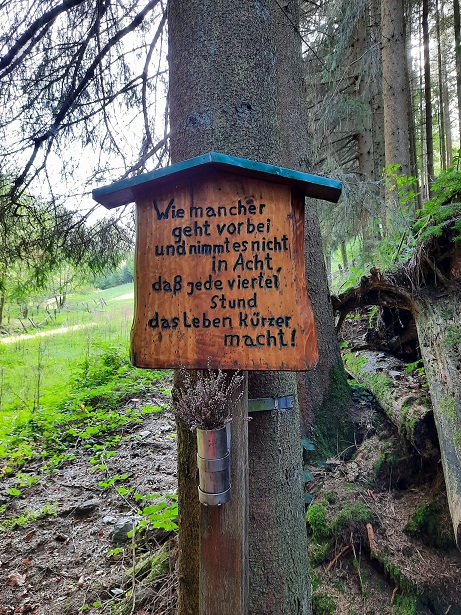 Wie mancher
geht vorbei
und nimmt es nicht
in Acht,
daß jede viertel
Stund
das Leben kürzer
macht!